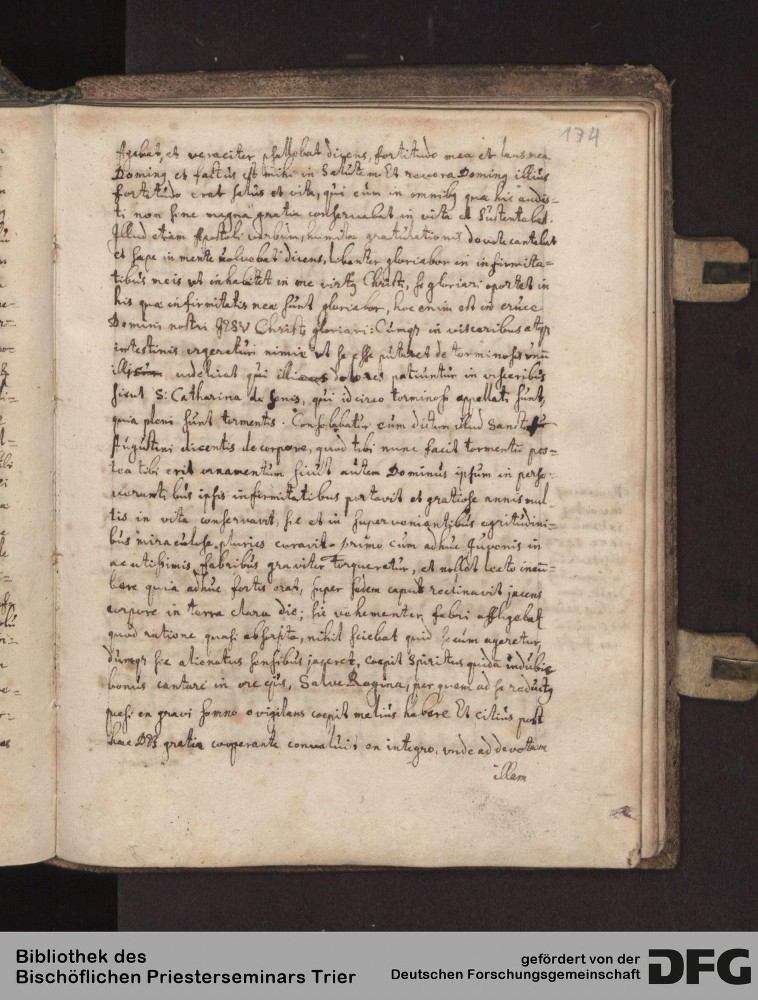 174
Agebat, et veraciter psallebat dicens, fortitudo mea et laus mea
Dominq et factus est mihi in Salutem Et revera Dominq illius
fortitudo erat salus et vita, qui eum in omnibq quæ hic audis-
ti non sine magna gratia conservabat in vita et Sustentabat.
Illud etiam Apostoli verbum, humilis devote cantabat
et sæpe in mente volvebat dicens, libenter gloriabor in infirmita-
tibus meis ut inhabitet in me virtq Christi, si gloriari oportet in
his quæ infirmitatis meæ sunt gloriabor, hoc enim est in cruce
Domini nostri JESU Christi gloriari: Cumqꝫ in visceribus atqꝫ
intestinis urgeretur nimis ut se esse putaret de torminosis unū
videlicet qui dolores patiuntur in visceribus
sicut S: Catharina de Senis, qui idcirco torminosi appellati sunt,
quia pleni sunt tormentis. Consolabatur eum dictum illud Sancti
Augustini dicentis de corpore, quod tibi nunc facit tormentū pos-
tea tibi erit ornamentum sicut autem Dominus ipsum in perse-
verantibus ipsis infirmitatibus portavit et gratiose annis mul-
tis in vita conservavit, sic et in supervenientibus ægritudini-
bus miraculose pluries curavit. primo cum adhuc Juvenis in
acutissimis febribus graviter torqueretur, et nollet lecto incū-
bere quia adhuc fortis erat, super sedem caput reclinavit jacens
corpore in terra clara die; sic vehementer febri affligebat
quod ratione quasi absorpta, nihil sciebat quid secum ageretur,
dumqꝫ sic alienatus sensibus jaceret, cœpit Spiritus quidā indubie
bonus cantare in ore ejus, Salve Regina, per quem ad se reductq
quasi ex gravi somno evigilans coepit melius habere Et citius post
hæc Dei gratia cooperante convaluit ex integro, unde ad devotam
illam
Bibliothek des
Bischöflichen Priesterseminars Trier
gefördert von der
Deutschen Forschungsgemeinschaft
DFG